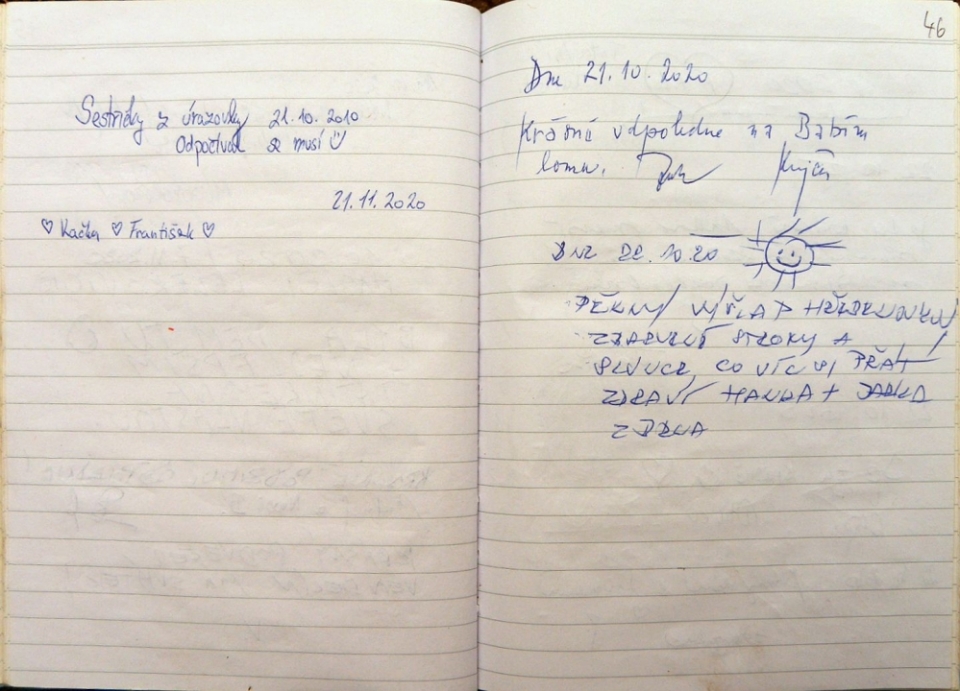 Sestřičky z úrazovky 21.10.2010
Odpočívat se musí
21.11.2020
Kačka František
46
Dne 21.10.2020
Krásné odpoledne na Babím
lomu.
Dne 22.10.20
PĚKNÝ VÝŠLAP
ZBARVENÉ STROMY A
SLUNCE, CO VÍC SI PŘÁT
ZDRAVÍ HANKA + JARKA
Z BRNA